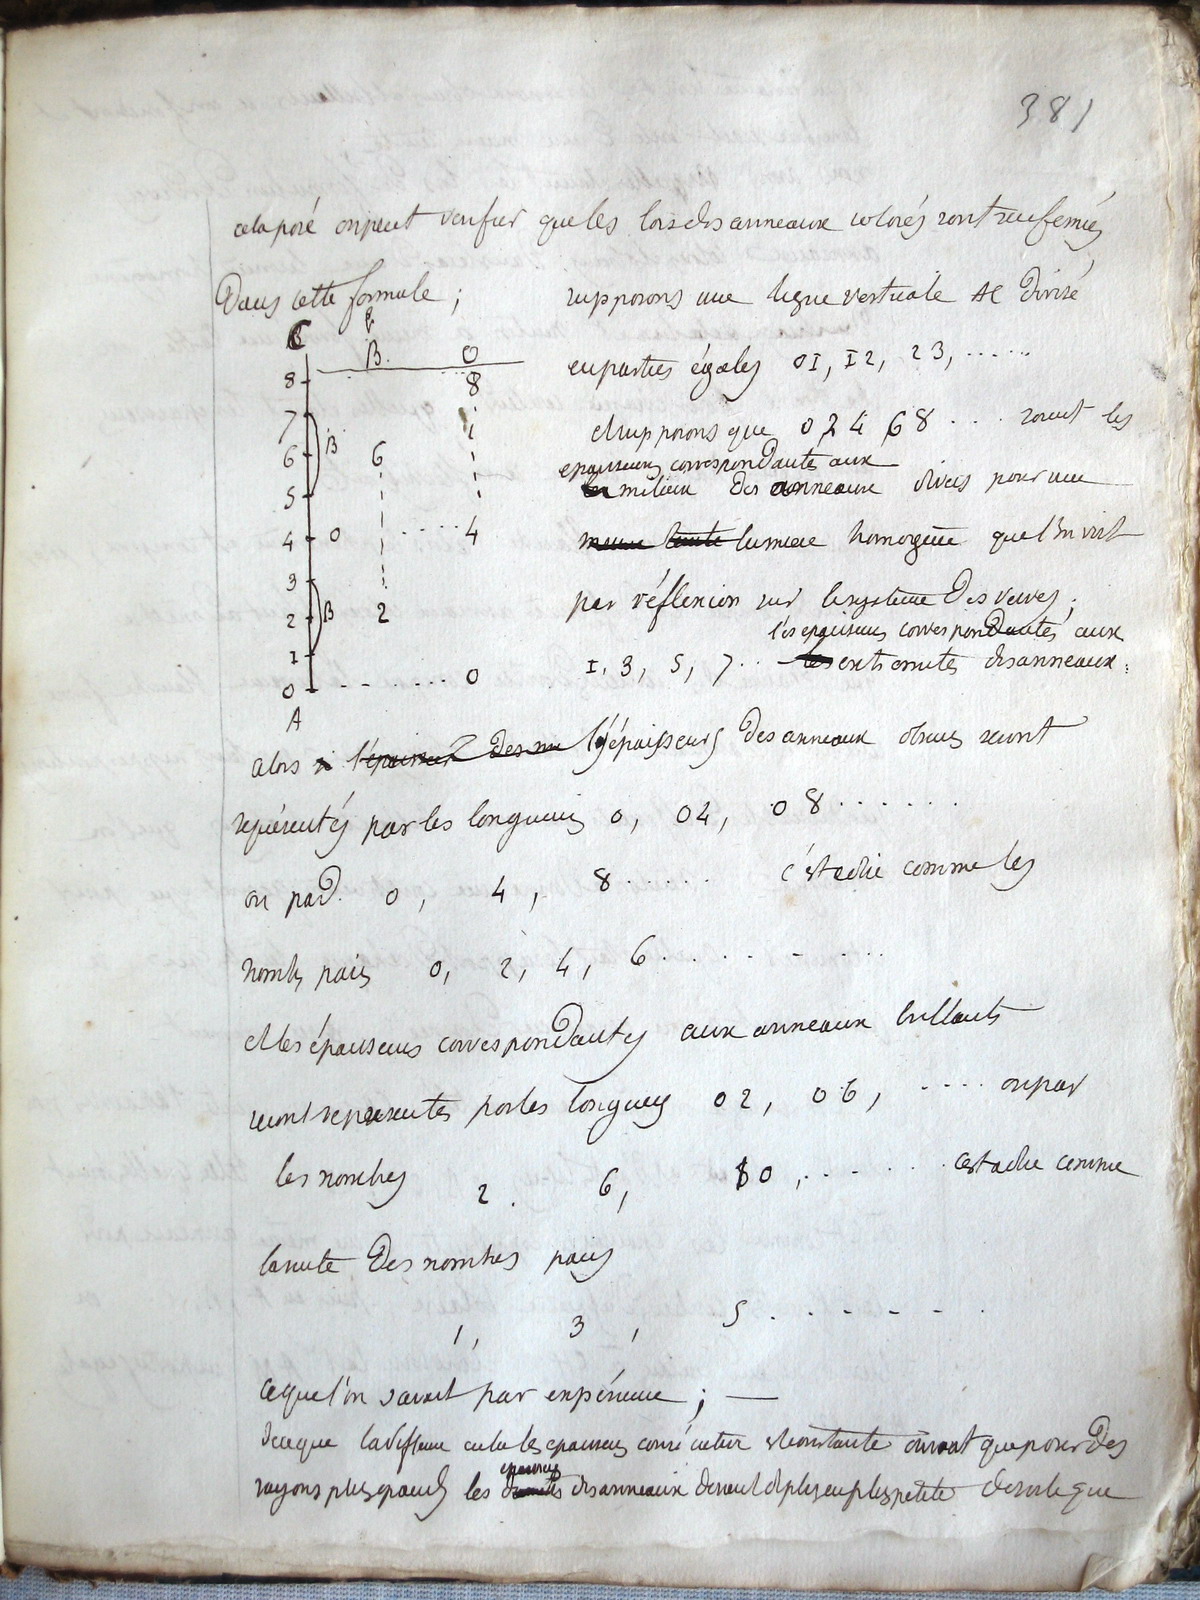 381
cela posé on peut verifier que les lois des anneaux colorés sont renfermées
Dans cette formule ; supposons une ligne verticale AC divisé
C
B. 0
8 8 en parties égales 01, 12, 23, ......
7
et supposons que 0 2 4 6 8 . . . soient les
6 B 6
epaisseurs correspondantes aux
5 les milieux des anneaux divers pour une
4 0 ..... 4 meme teinte lumiere homogene que l'on voit
3
2 B 2 par réflexion sur le systeme Des verres ;
les epaisseurs correspondantes aux
1 1, 3, 5, 7 .. les extremités des anneaux :
0 - - - ..... 0
A
alors si l'épaisseur des les épaisseurs des anneaux obscurs seront
représentés par les longueurs 0, 04, 08 ......
ou par 0, 4, 8 ..... c'est a dire comme les
nombs pairs 0, 2, 4, 6 ........
et les épaisseurs correspondantes aux anneaux brillants
seront representés par les longueurs 02, 06, .... ou par
les nombres 2. 6, 10, ..... c'est a dire comme
la suite Des nombres pairs
1, 3, 5 . - - - - .
ce que l'on savait par expérience ; —
de ce que la différence entre les epaisseurs consécutives est constante on voit que pour des
epaisseurs
rayons plus grands les des anneaux devient de plus en plus petite de sorte que